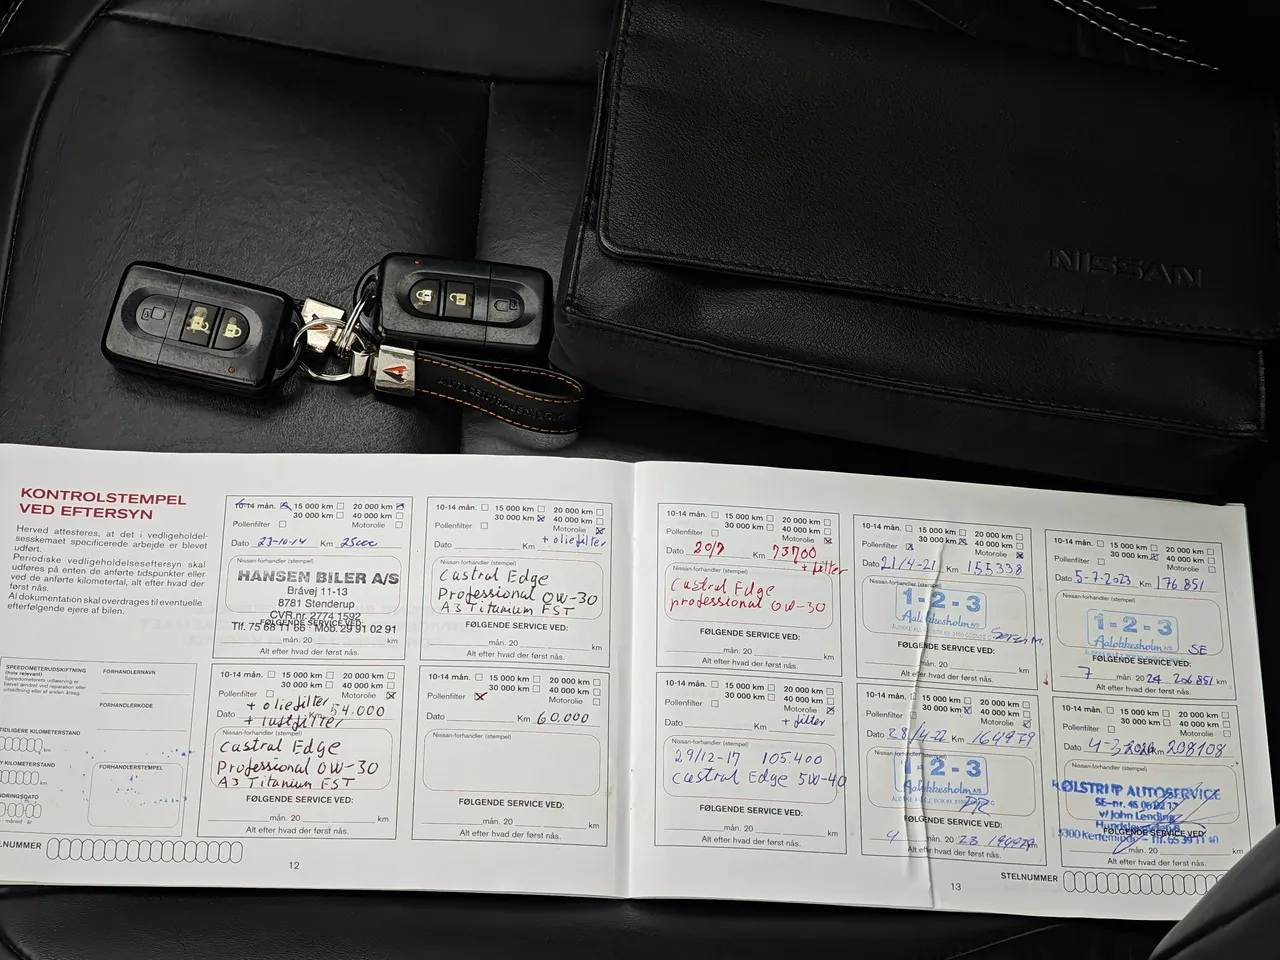 NISSAN
KONTROLSTEMPEL
VED EFTERSYN
Herved attesteres, at det i vedligeholdel-
sesskemaet specificerede arbejde er blevet
udført.
Periodiske vedligeholdelseseftersyn skal
udføres på enten de anførte tidspunkter eller
ved de anførte kilometertal, alt efter hvad der
først nås.
Al dokumentation skal overdrages til eventuelle
efterfølgende ejere af bilen.
SPEEDOMETERUDSKIFTNING
(hvis relevant)
FORHANDLERNAVN
FORHANDLERKODE
FORHANDLERSTEMPEL
TIDLIGERE KILOMETERSTAND
km
KILOMETERSTAND
km
STELNUMMER
10-14 mån. 15 000 km 20 000 km
30 000 km 40 000 km
Pollenfilter Motorolie
Dato 23-10-14 Km 25000
Nissan-forhandler (stempel)
HANSEN BILER A/S
Bråvej 11-13
8781 Stenderup
CVR.nr. 2774 1592
Tlf. 75 68 11 66 · Mob. 29 91 02 91
FØLGENDE SERVICE VED:
mån. 20 km
Alt efter hvad der først nås.
10-14 mån. 15 000 km 20 000 km
30 000 km 40 000 km
Pollenfilter Motorolie
+ oliefilter
Dato Km 54.000
+ luftfilter
Nissan-forhandler (stempel)
Castral Edge
Professional 0W-30
A3 Titanium FST
FØLGENDE SERVICE VED:
mån. 20 km
Alt efter hvad der først nås.
12
10-14 mån. 15 000 km 20 000 km
30 000 km 40 000 km
Pollenfilter Motorolie
+ oliefilter
Dato Km
Nissan-forhandler (stempel)
Castral Edge
Professional 0W-30
A3 Titanium FST
FØLGENDE SERVICE VED:
mån. 20 km
Alt efter hvad der først nås.
10-14 mån. 15 000 km 20 000 km
30 000 km 40 000 km
Pollenfilter Motorolie
Dato Km 60.000
Nissan-forhandler (stempel)
FØLGENDE SERVICE VED:
mån. 20 km
Alt efter hvad der først nås.
10-14 mån. 15 000 km 20 000 km
30 000 km 40 000 km
Pollenfilter Motorolie
Dato 20/7 Km 73700
+ filter
Nissan-forhandler (stempel)
Castral Edge
professional 0W-30
FØLGENDE SERVICE VED:
mån. 20 km
Alt efter hvad der først nås.
10-14 mån. 15 000 km 20 000 km
30 000 km 40 000 km
Pollenfilter Motorolie
+ filter
Dato Km
Nissan-forhandler (stempel)
29/12-17 105.400
Castral Edge 5W-40
FØLGENDE SERVICE VED:
mån. 20 km
Alt efter hvad der først nås.
10-14 mån. 15 000 km 20 000 km
30 000 km 40 000 km
Pollenfilter Motorolie
Dato 21/4-21 Km 155338
Nissan-forhandler (stempel)
1-2-3
Aaløkkesholm A/S
FØLGENDE SERVICE VED:
mån. 20 km
Alt efter hvad der først nås.
10-14 mån. 15 000 km 20 000 km
30 000 km 40 000 km
Pollenfilter Motorolie
Dato 28/4-22 Km 164979
Nissan-forhandler (stempel)
1-2-3
Aaløkkesholm A/S
FØLGENDE SERVICE VED:
4 mån. 20 23 km
Alt efter hvad der først nås.
13
10-14 mån. 15 000 km 20 000 km
30 000 km 40 000 km
Pollenfilter Motorolie
Dato 5-7-2023 Km 176 851
Nissan-forhandler (stempel)
1-2-3
Aaløkkesholm A/S SE
FØLGENDE SERVICE VED:
7 mån. 20 24 206 851 km
Alt efter hvad der først nås.
10-14 mån. 15 000 km 20 000 km
30 000 km 40 000 km
Pollenfilter Motorolie
Dato 4-3 2024 Km 208108
Nissan-forhandler (stempel)
KØLSTRUP AUTOSERVICE
v/ John Lending
5300 Kerteminde - Tlf.
FØLGENDE SERVICE VED:
mån. 20 km
Alt efter hvad der først nås.
STELNUMMER